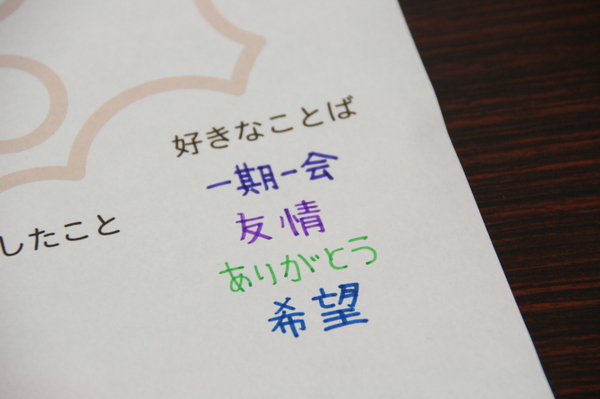 好きなことば
一期一会
友情
ありがとう
希望
したこと